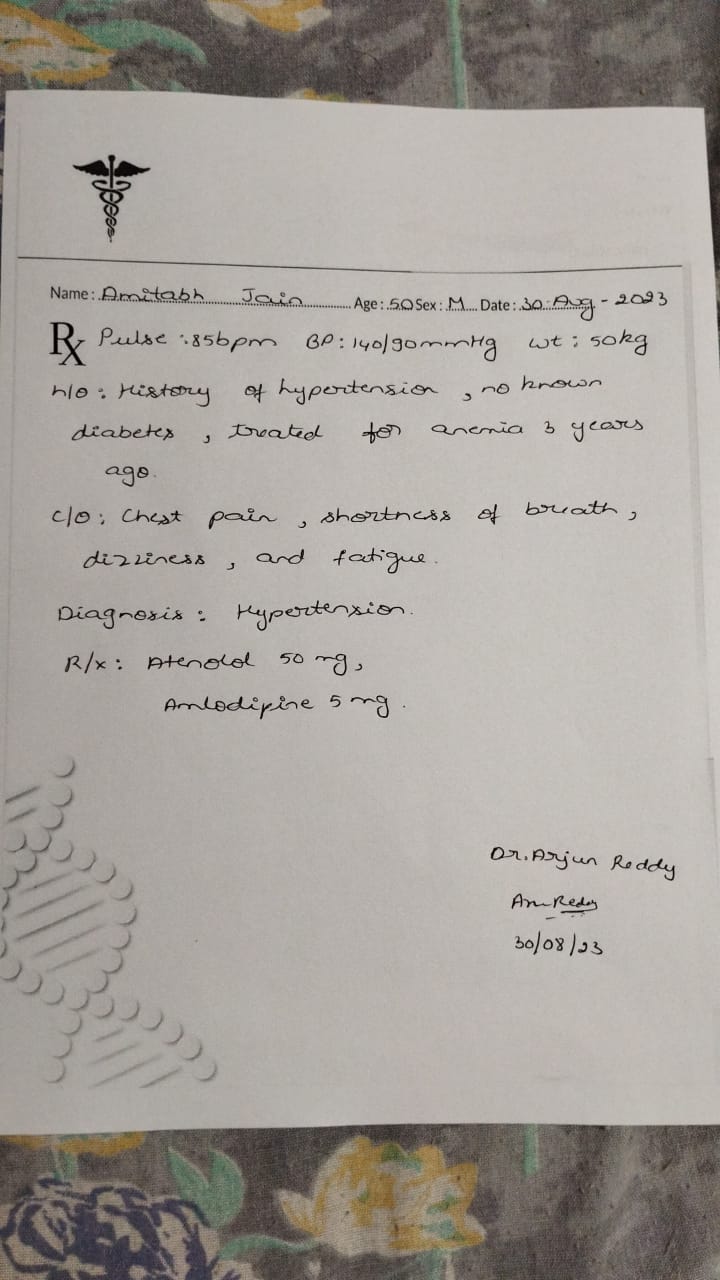 Name: Amitabh Jain Age: 50 Sex: M Date: 30-Aug-2023
Rx Pulse: 85bpm BP: 140/90mmHg wt: 50kg
h/o: History of hypertension, no known
diabetes, treated for anemia 3 years
ago.
c/o: Chest pain, shortness of breath,
dizziness, and fatigue.
Diagnosis: Hypertension.
R/x: Atenolol 50 mg,
Amlodipine 5 mg.
Dr. Arjun Reddy
30/08/23